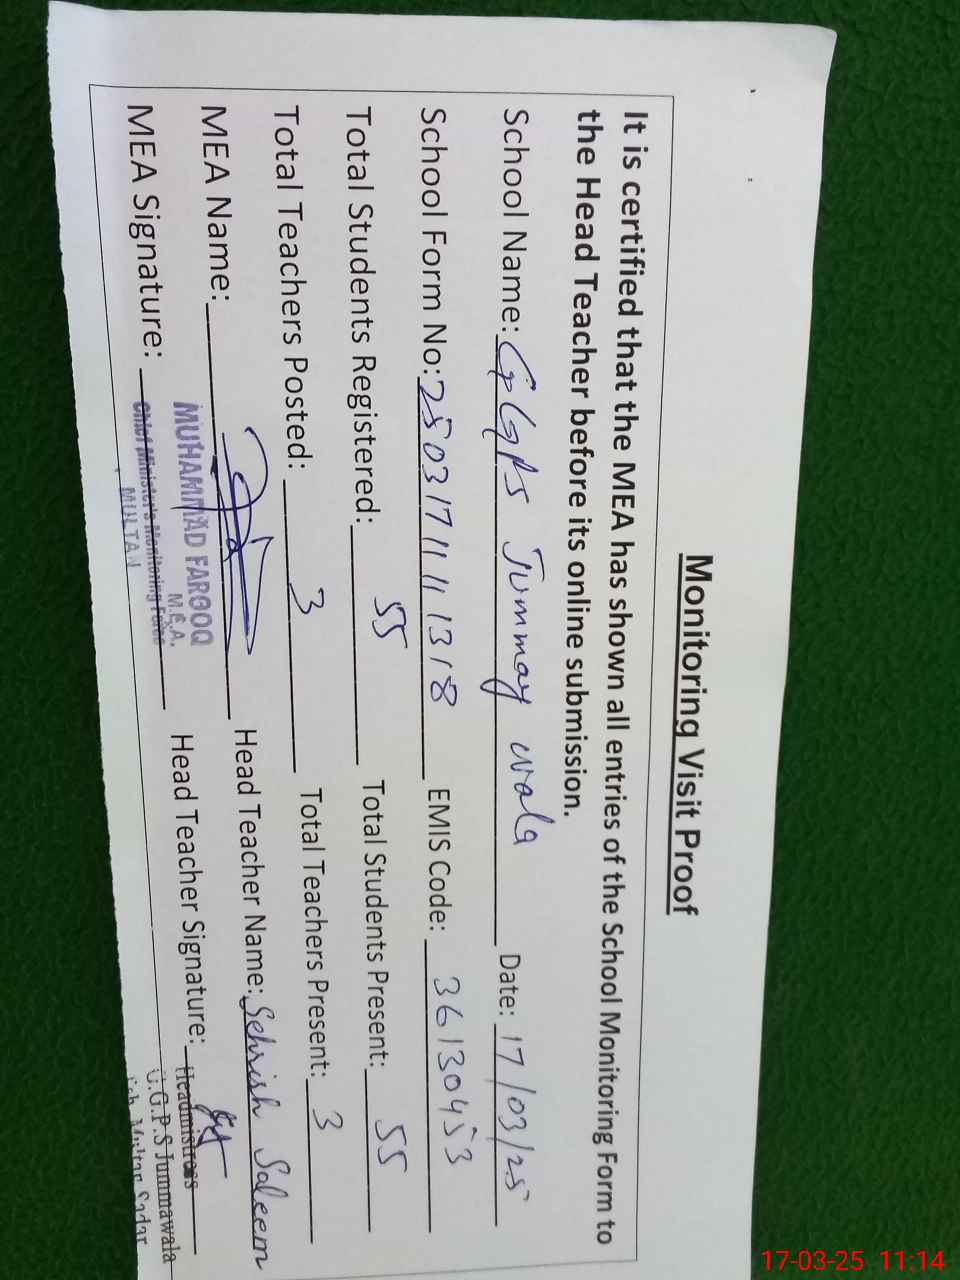 Monitoring Visit Proof
It is certified that the MEA has shown all entries of the School Monitoring Form to
the Head Teacher before its online submission.
School Name: GGPS Jummay wala Date: 17/03/25
School Form No: 25031711111318 EMIS Code: 36130453
Total Students Registered: 55 Total Students Present: 55
Total Teachers Posted: 3 Total Teachers Present: 3
MEA Name: Head Teacher Name: Sehrish Saleem
MEA Signature: Head Teacher Signature:
MUHAMMAD FAROOQ
M.E.A.
Chief Minister's Monitoring Force
MULTAN
Headmistress
G.G.P.S Jummawala
Multan Sadar
17-03-25 11:14